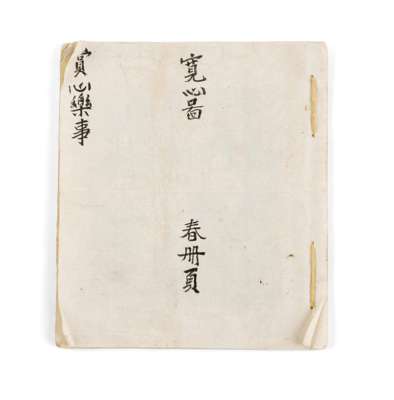 寬心啚
春册頁
賞心樂事